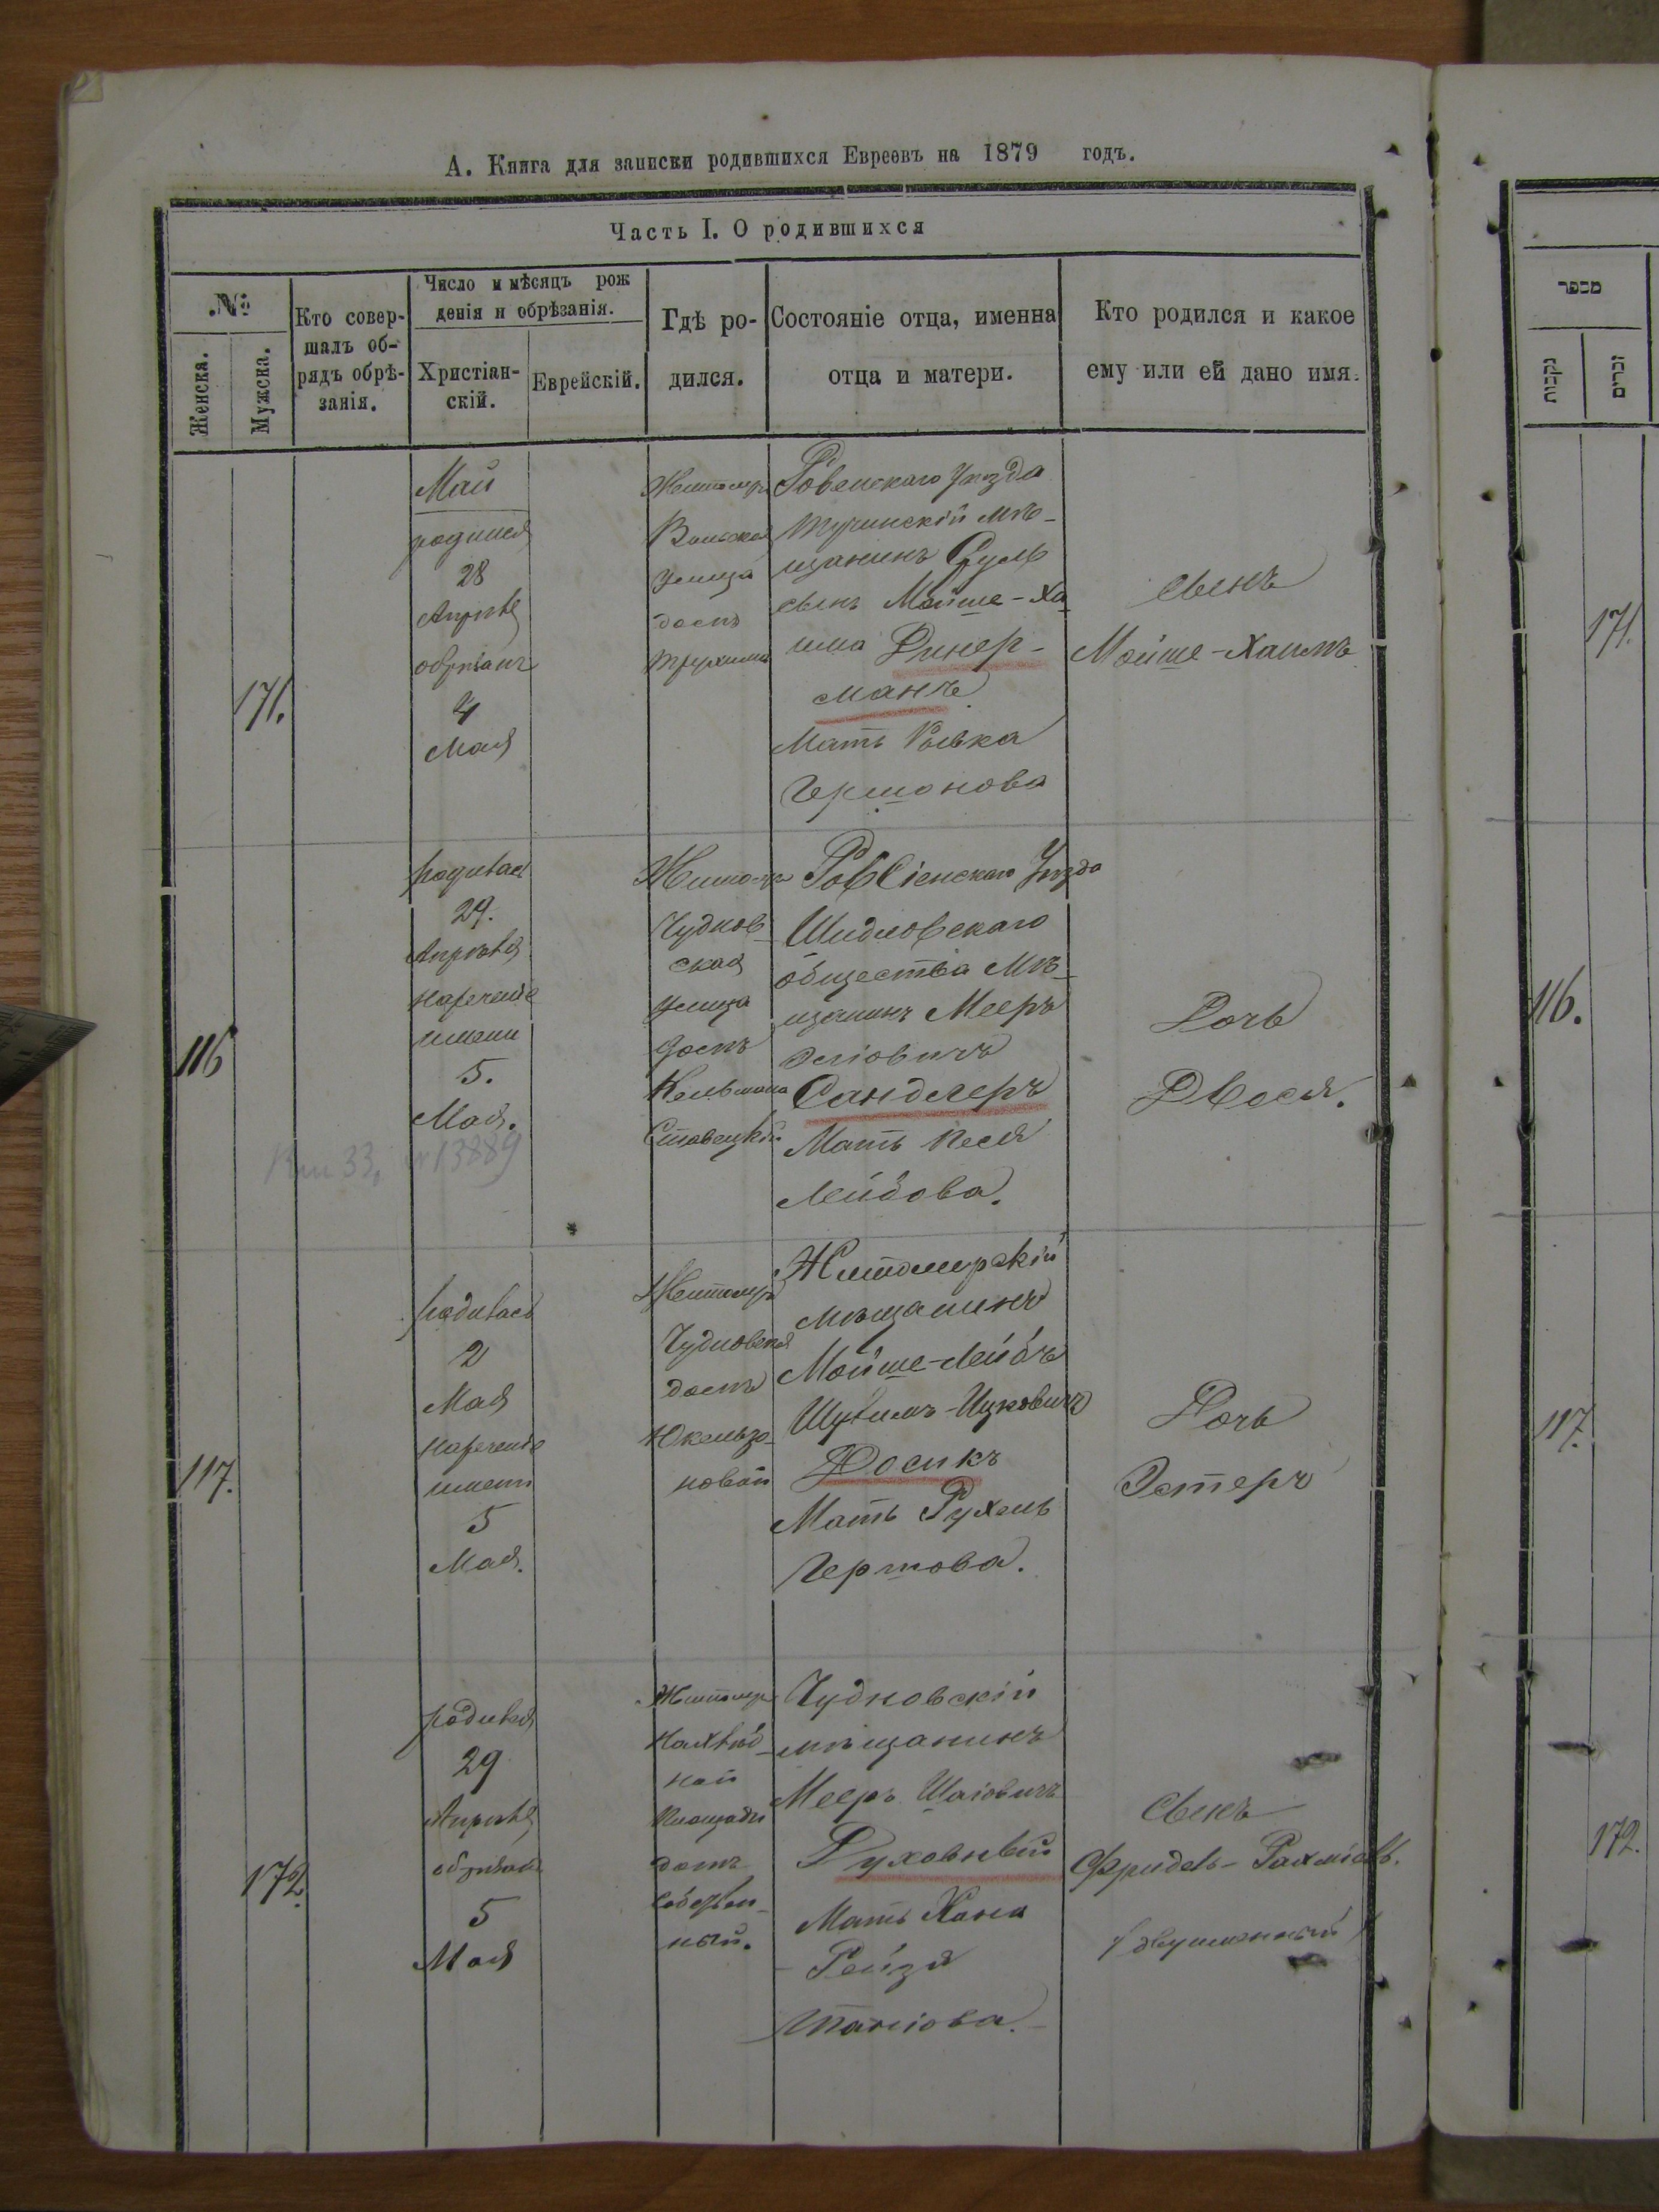 А. Книга для записки родившихся Евреевъ на 1879 годъ.
Часть I. О родившихся
№
Женска.
Мужска.
Кто совер-
шалъ об-
рядъ обрѣ-
занія.
Число и мѣсяцъ рож
денія и обрѣзанія.
Христіан-
скій.
Еврейскій.
Гдѣ ро-
дился.
Состояніе отца, именна
отца и матери.
Кто родился и какое
ему или ей дано имя.
מספר
נקבות
זכרים
171.
Май
родился
28
Апрѣля
обрѣзанъ
4
Мая
Житомиръ
улица
домъ
Ровенскаго Уѣзда
Тучинскій мѣ-
щанинъ Сруль
сынъ Мойше-Ха
има Динер-
манъ
Мать Ривка
Гершонова
Сынъ
Мойше-Хаимъ
171.
116
родилась
29.
Апрѣля
нареченіе
имени
5.
Мая.
Кни 33, 13889
Житомиръ
Чуднов-
ская
улица
домъ
Кельмана
Ставецкій
Уѣзда
Шидловскаго
общества Мѣ-
щанинъ Мееръ
Эліовичъ
Сандлеръ
Мать Песя
Лейбова.
Дочь
Двося.
116.
117.
родилась
2
Мая
нареченіе
имени
5
Мая.
Житомиръ
Чудновская
домъ
Юкельзо-
новой
Житомирскій
мѣщанинъ
Мойше-Лейбъ
Шулимъ-Ицковичъ
Досикъ
Мать Рухель
Гершова.
Дочь
Эстеръ
117.
172.
родился
29
Апрѣля
обрѣзанъ
5
Мая
Житомиръ
На хлѣб-
ной
площади
домъ
собствен-
ный.
Чудновскій
мѣщанинъ
Мееръ Шаіовичъ
Духовный
Мать Хана
Рейзя
Сынъ
Фридель-Рахміель.
/двуименный/
172.